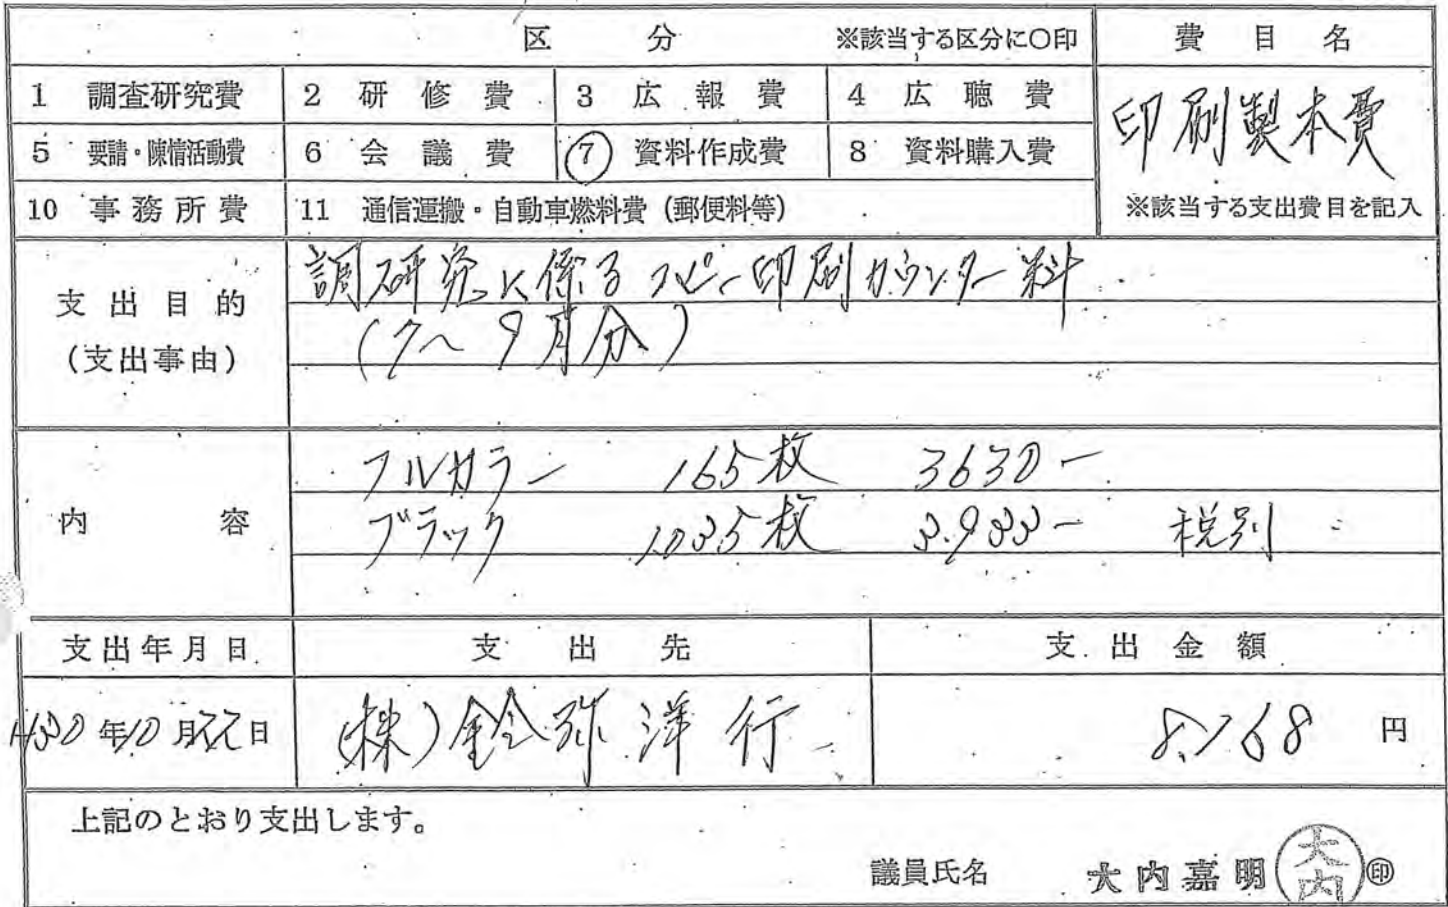 区分 ※該当する区分に○印 費目名
1 調査研究費 2 研修費 3 広報費 4 広聴費 印刷製本費
5 要請・陳情活動費 6 会議費 7 資料作成費 8 資料購入費
10 事務所費 11 通信運搬・自動車燃料費(郵便料等) ※該当する支出費目を記入
支出目的
(支出事由)
調研究に係るコピー印刷カウンター料
(7〜9月分)
内容
フルカラー 165枚 3630-
ブラック 1.035枚 3.933- 税別
支出年月日 支出先 支出金額
H30年10月22日 (株)鈴弥洋行 8.168円
上記のとおり支出します。
議員氏名 大内嘉明 大内 ㊞